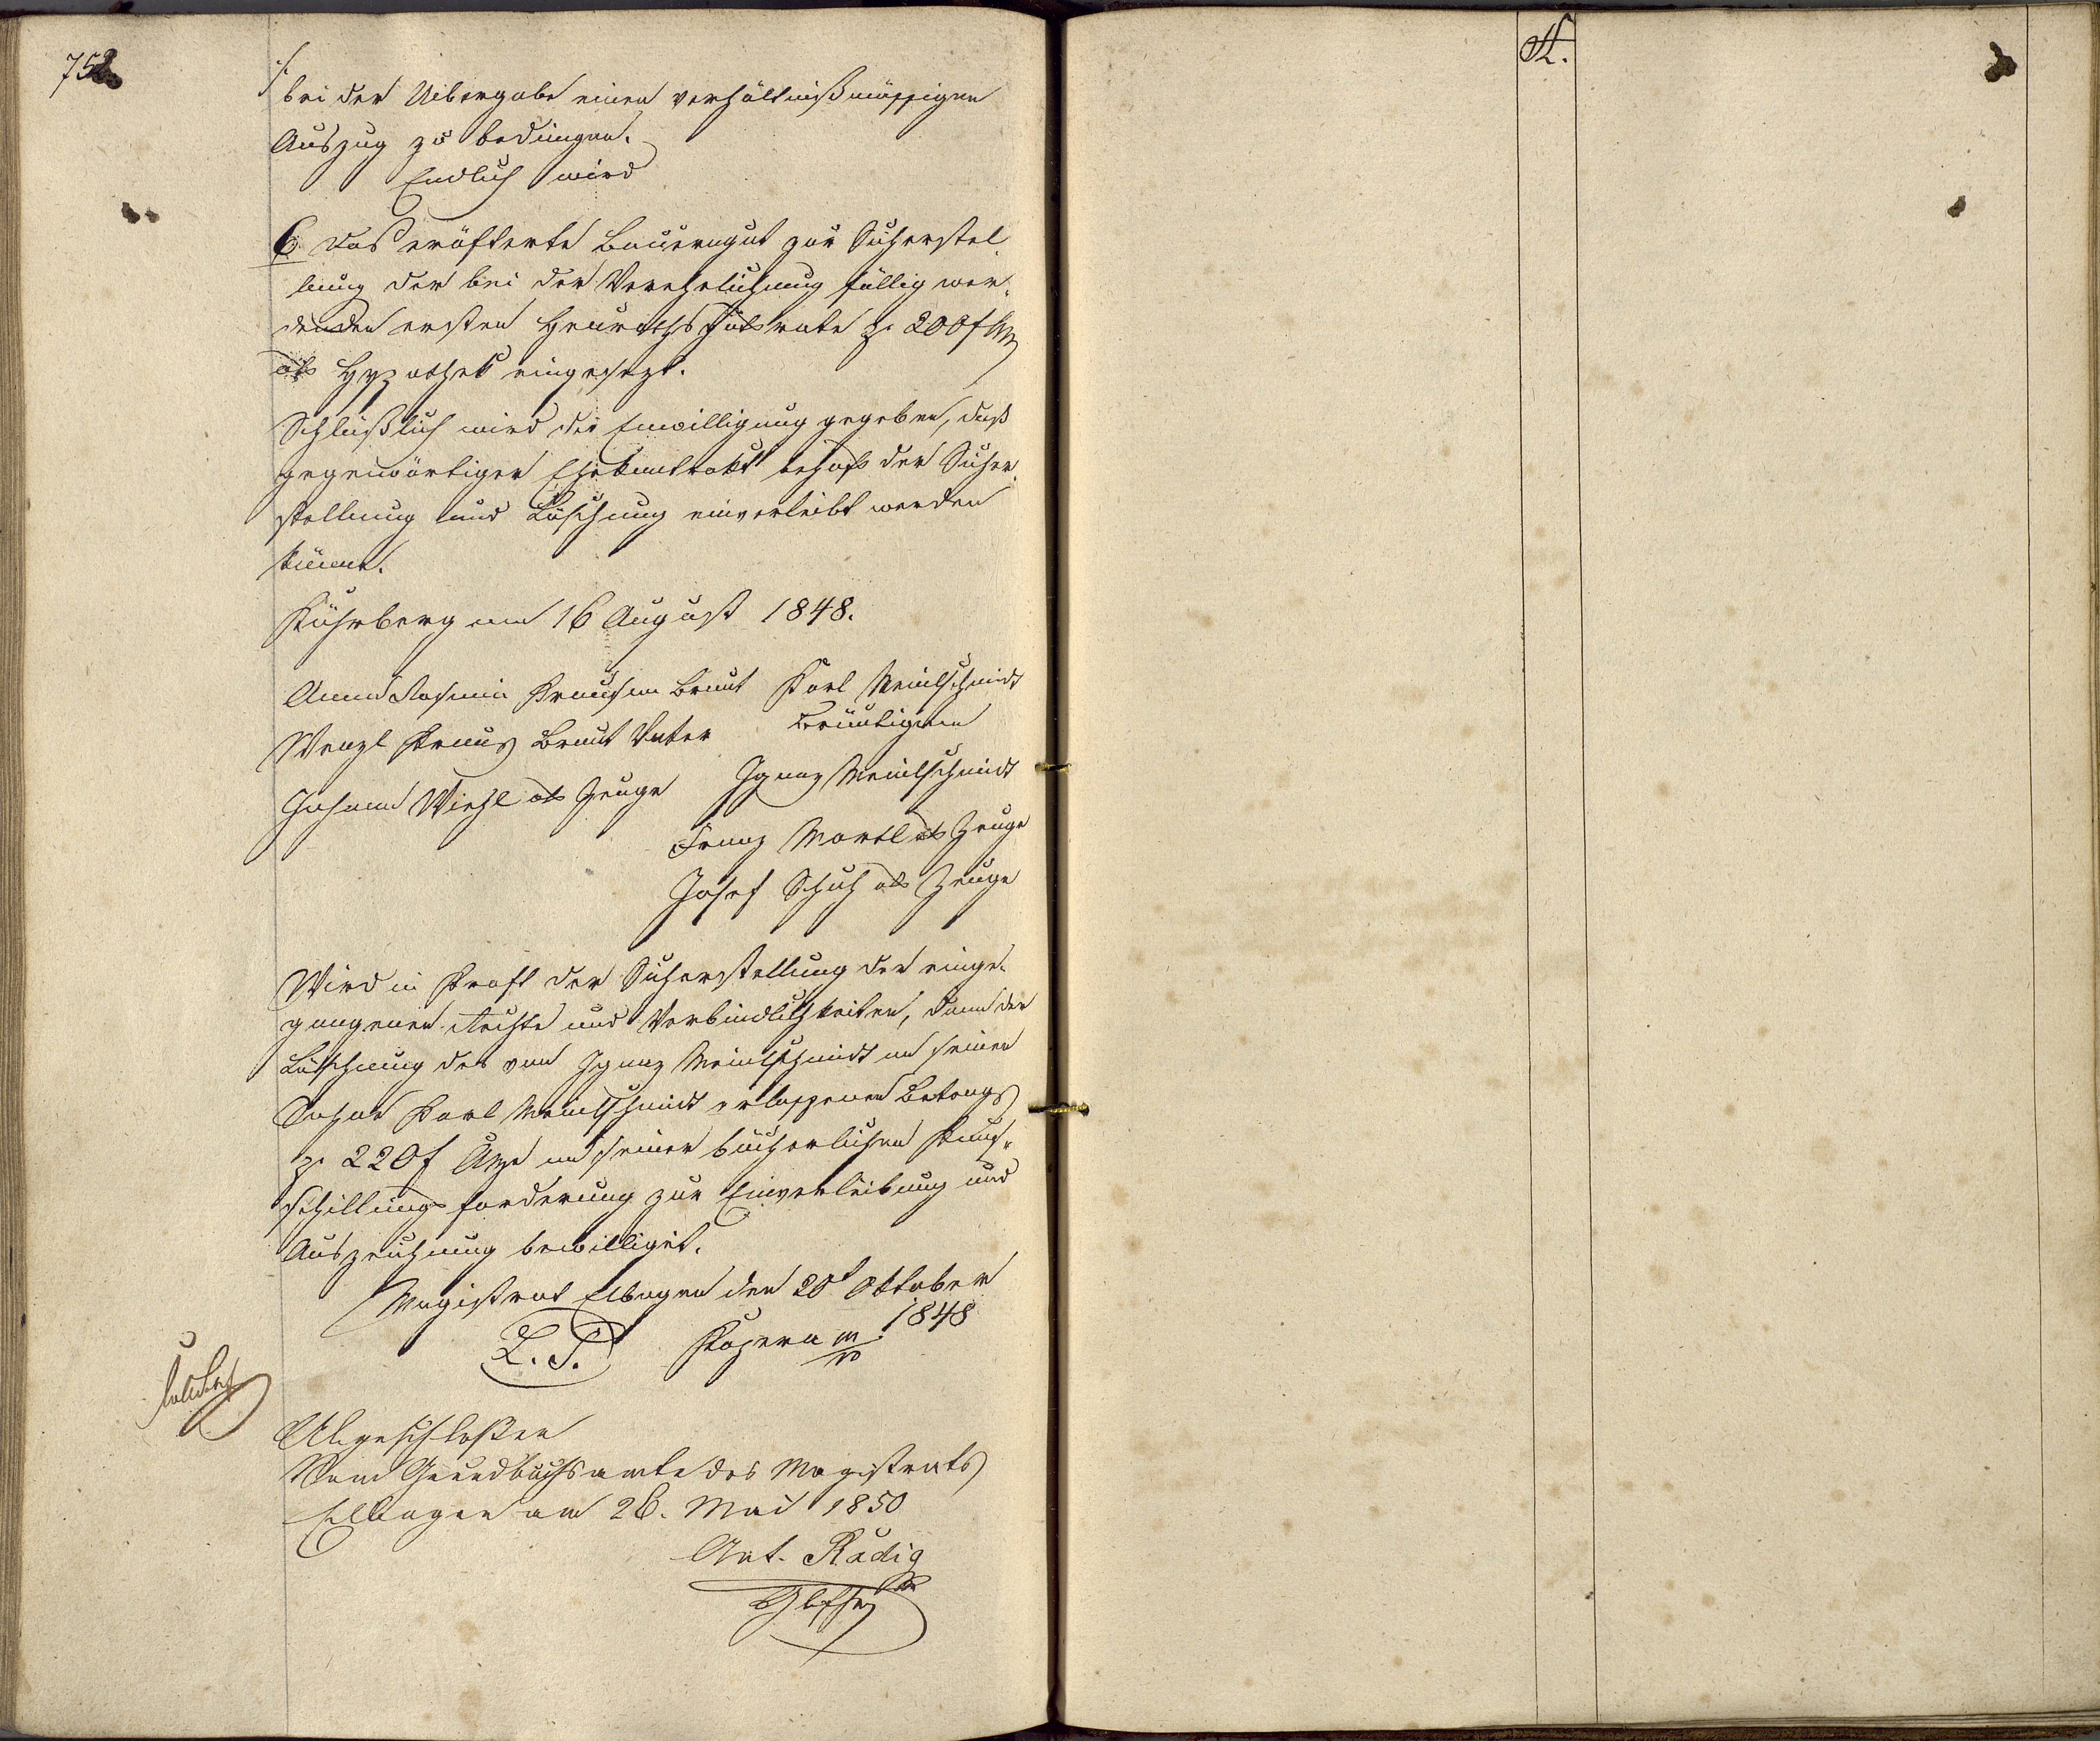 752
./.
bei der Uibergabe einen verhältnißmässigen
Auszug zu bedingen.
Endlich wird
6. das eröfterte Bauerngut zur Sicherstel-
lung der bei der Verehelichung fällig wer-
denden ersten Heuraths Guts rate pr 200 f
als Hypothek eingesezt.
Schlüßlich wird die Einwilligung gegeben, daß
gegenwärtiger Ehekontrakt behufs der Sicher-
stellung und Löschung einverleibt werden
könne.
Kührberg am 16 August 1848.
Anna Rosina Krausin Braut Karl Meinlschmidt
Wenzl Kraus Braut Vater Bräutigam
Johann Wiehl als Zeuge Ignaz Meinlschmidt
Franz Martl als Zeuge
Josef Schuh als Zeuge
Wird in Kraft der Sicherstellung der einge-
gangenen Rechte und Verbindlichkeiten, dann der
Löschung des vom Ignaz Meinlschmidt an seinen
Sohne Karl Meinlschmidt erlassenen Betrags
pr 220 f an seiner bücherlichen Kauf-
schillings forderung zur Einverleibung und
Auszeichnung bewilliget.
Magistrat Elbogen den 20t Oktober
1848
L. S. Kozena m/p
Abgeschloßen
Vom Grundbuchsamte des Magistrats
Ellbogen am 26. Mai 1850
Ant. Radig
A.